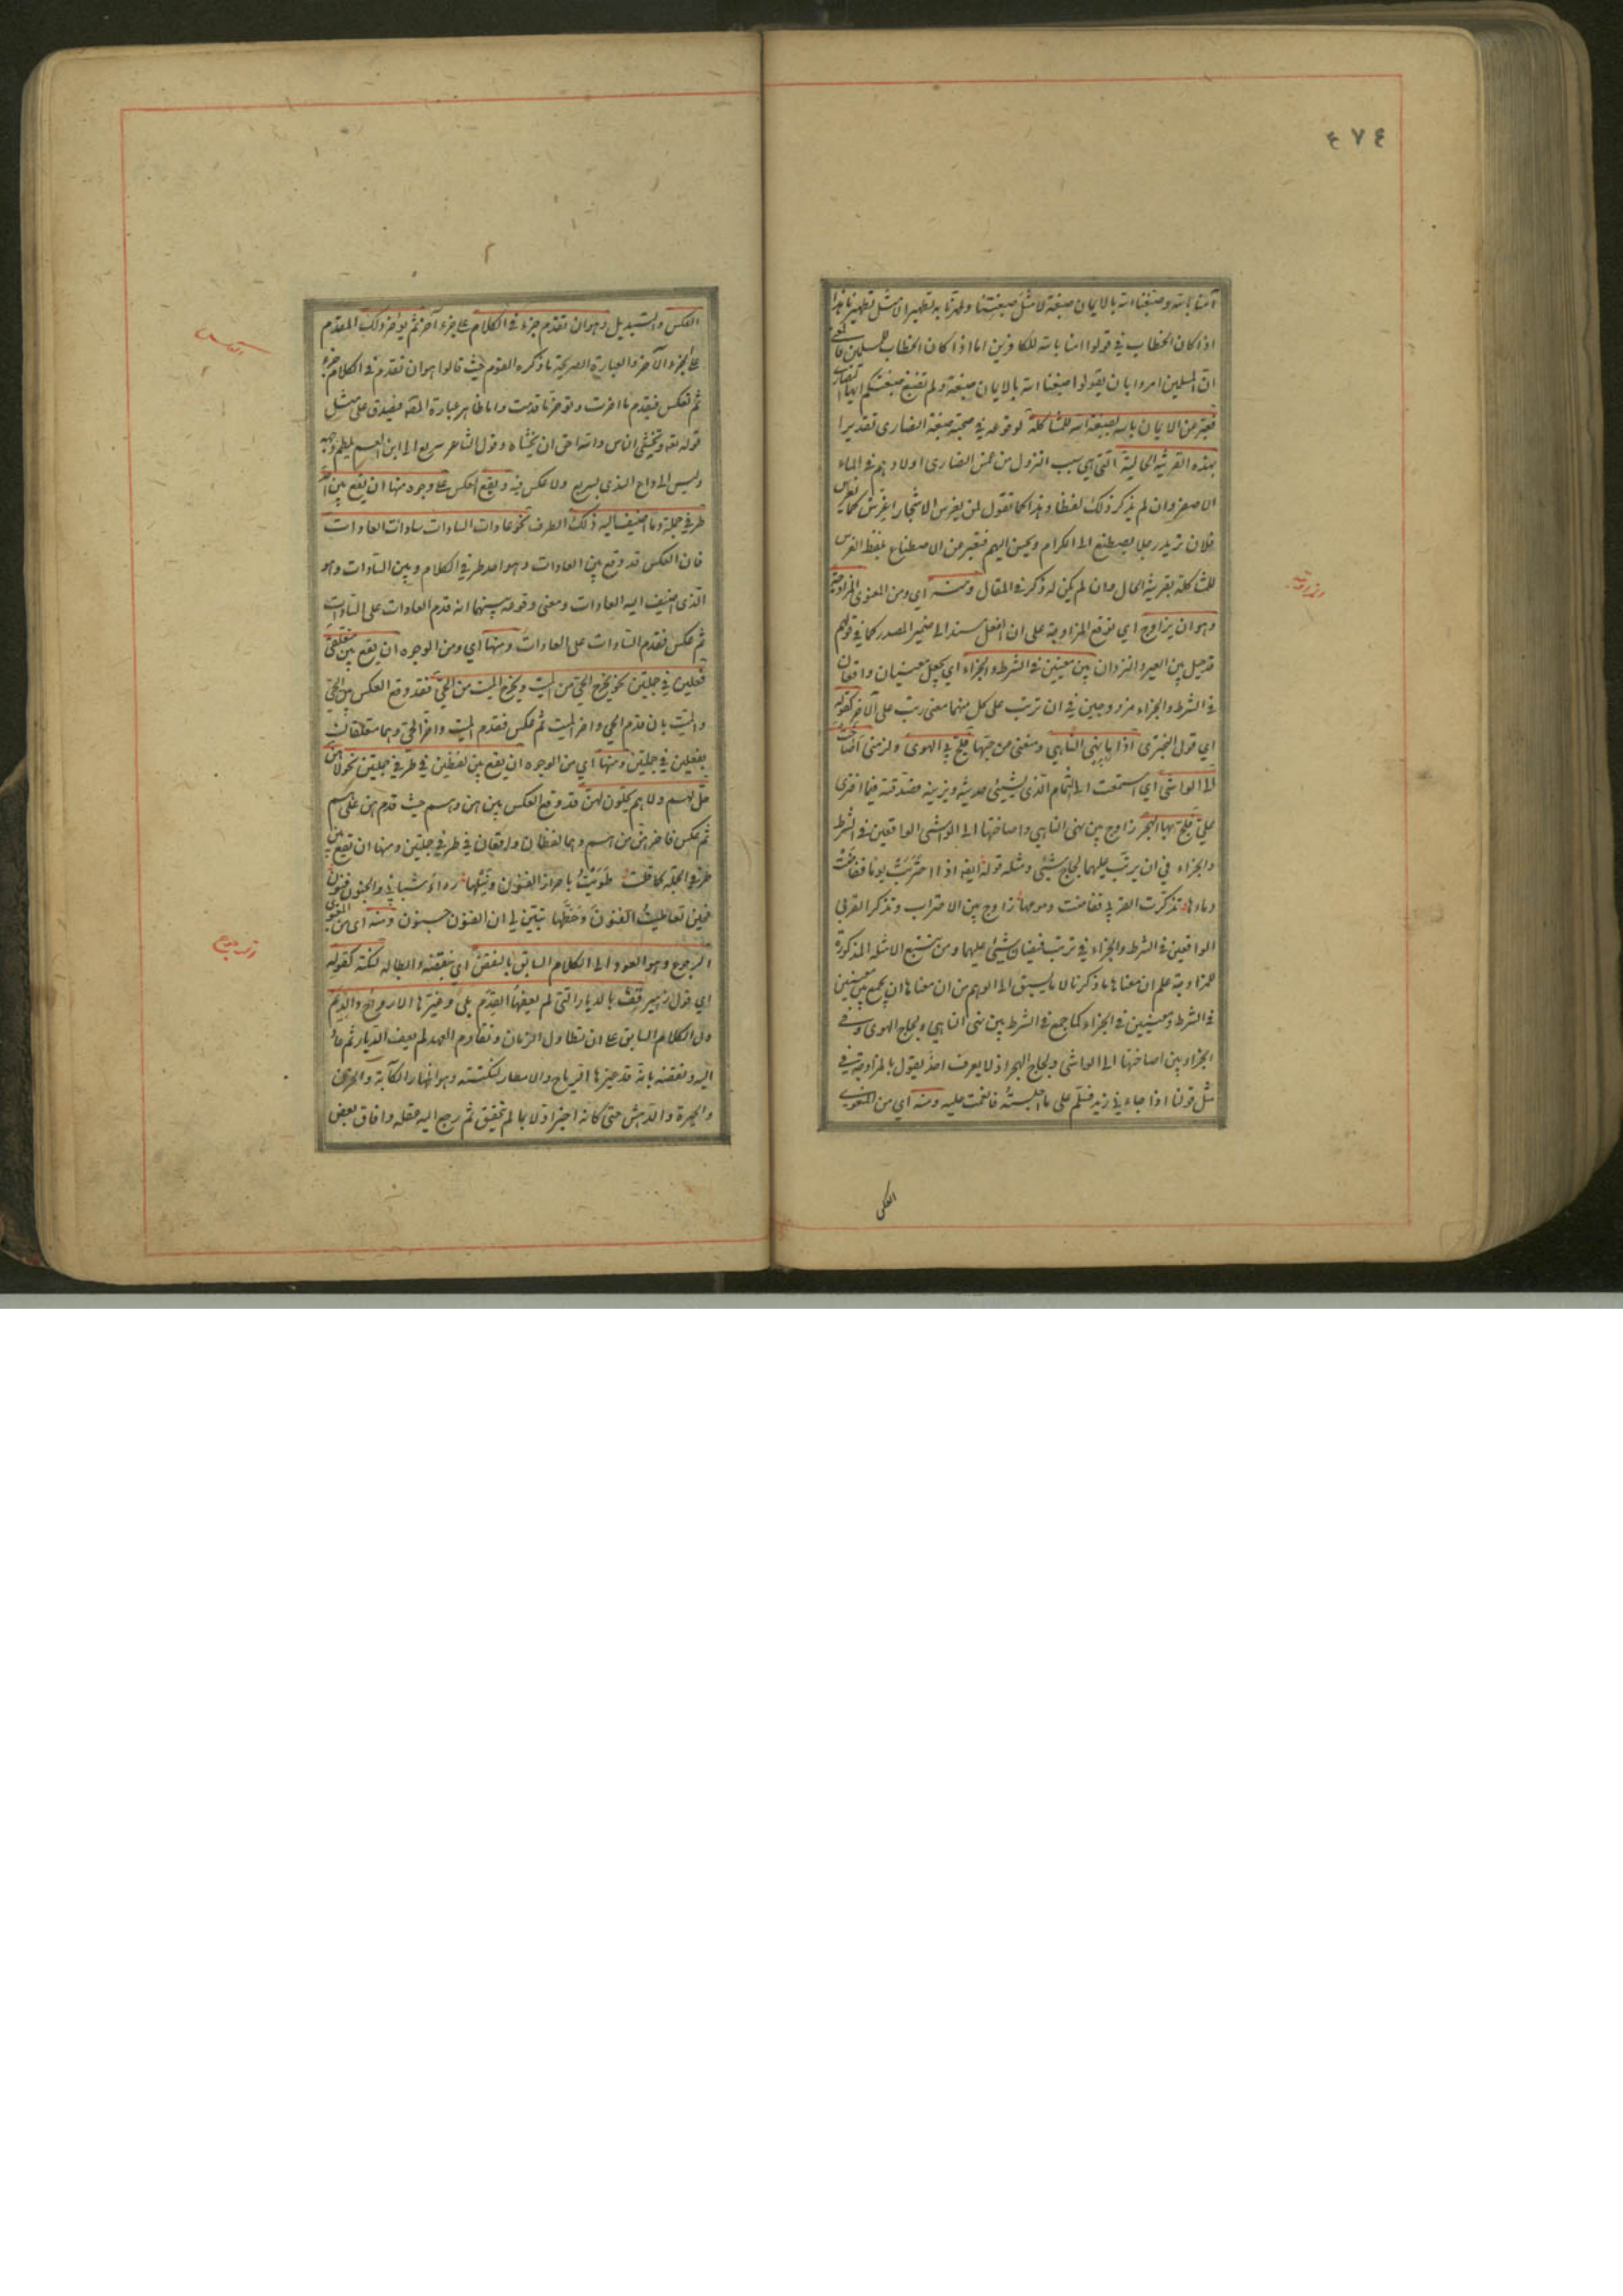 ٤٧٤
آمنا بالله وصبغنا الله بالايمان صبغة لا مثل صبغتنا وطهرنا به تطهيرا لا مثل تطهيرنا هذا
اذا كان الخطاب في قولوا امنا بالله للكافرين اما اذا كان الخطاب للمسلمين فالمعنى
ان المسلمين امروا بان يقولوا صبغنا الله بالايمان صبغة ولم نصبغ صبغتكم ايها النصارى
فعبر عن الايمان بالله بصبغة الله للمشاكلة لوقوعه في صحبة صبغة النصارى تقديرا
بهذه القرينة الحالية التي هي سبب النزول من غمس النصارى اولادهم في الماء
الاصفر وان لم يذكر ذلك لفظا وهذا كما تقول لمن يغرس الاشجار اغرس كما يغرس
فلان تريد رجلا يصطنع الى الكرام ويحسن اليهم فتعبر عن الاصطناع بلفظ الغرس
للمشاكلة بقرينة الحال وان لم يكن له ذكر في المقال ومنه اي ومن المعنوى المزاوجة
وهو ان يزاوج اي توقع المزاوجة على ان الفعل مسند الى ضمير المصدر كما في قولهم
قد حيل بين العير والنزوان بين معنيين في الشرط والجزاء اي يجعل معنيان واقعان
في الشرط والجزاء مزدوجين في ان ترتب على كل منهما معنى رتب على الآخر كقوله
اي قول البحترى اذا ما نهى الناهي ومنعنى من حبها فلج بي الهوى ولزمنى اصاخت
الى الواشى اي استمعت الى النمام الذى يشيئ حديثه ويزينه فصدقته فيما افترى
علي فلج بها الهجر زاوج بين نهى الناهي واصاختها الى الواشى الواقعين في الشرط
والجزاء في ان يرتب عليهما لجاج شيئ ومثله قوله ايضا اذا احتربت يوما ففاضت
دماءها تذكرت القربى ففاضت دموعها زاوج بين الاحتراب وتذكر القربى
الواقعين في الشرط والجزاء في ترتب فيضان شيئ عليهما ومن تتبع الامثلة المذكورة
للمزاوجة علم ان معناها ما ذكرنا لا ما يسبق الى الوهم من ان معناها ان يجمع بين معنيين
في الشرط ومعنيين في الجزاء كما جمع في الشرط بين نهى الناهي ولجاج الهوى وفي
الجزاء بين اصاختها الى الواشى ولجاج الهجر اذ لا يعرف احد يقول بالمزاوجة في
مثل قولنا اذا جاءني زيد فسلم على اجلسته فانعمت عليه ومنه اي من المعنوي
العكس
المزاوجة
العكس والتبديل وهو ان تقدم جزء في الكلام على جزء آخر ثم يؤخر ذلك المقدم
على الجزء الآخر والعبارة الصريحة ما ذكره القوم حيث قالوا هو ان تقدم في الكلام جزء
ثم تعكس فتقدم ما اخرت وتؤخر ما قدمت واما ظاهر عبارة المص فيصدق على مثل
قوله تعه وتخشى الناس والله احق ان تخشاه وقول الشاعر سريع الى ابن العم يلطم وجهه
وليس الى داع الندى بسريع ولا عكس فيه ويقع العكس على وجوه منها ان يقع بين احد
طرفي جملة وما اضيف اليه ذلك الطرف نحو عادات السادات سادات العادات
فان العكس قد وقع بين العادات وهو احد طرفي الكلام وبين السادات وهو
الذى اضيف اليه العادات ومعنى وقوعه بينهما انه قدم العادات على السادات
ثم عكس فقدم السادات على العادات ومنها اي ومن الوجوه ان يقع بين متعلقي
فعلين في جملتين نحو يخرج الحي من الميت ويخرج الميت من الحي فقد وقع العكس بين الحي
والميت بان قدم الحي واخر الميت ثم عكس فقدم الميت واخر الحي وهما متعلقان
بفعلين في جملتين ومنها اي من الوجوه ان يقع بين لفظين في طرفي جملتين نحو لا هن
حل لهم ولا هم يحلون لهن قد وقع العكس بين هن وهم حيث قدم هن على هم
ثم عكس فاخر هن من هم وهما لفظان واقعان في طرفي جملتين ومنها ان يقع بين
طرفي الجملة كما قلت طويت باحراز الفنون ونيلها رداء شبابي والجنون فنون
فحين تعاطيت الفنون وحظها تبين لي ان الفنون جنون ومنه اى من المعنوى
الرجوع وهو العود الى الكلام السابق بالنقض اي بنقضه وابطاله لنكتة كقوله
اي قول زهير قف بالديار التى لم يعفها القدم بلى وغيرها الارواح والديم
دل الكلام السابق على ان تطاول الزمان وتقادم العهد لم يعف الديار ثم عاد
اليه ونقضه بانه قد غيرها الرياح والامطار لنكتة وهو اظهار الكآبة والحزن
والحيرة والدهش حتى كانه اخبر اولا بما لم يتحقق ثم رجع اليه عقله وافاق بعض
العكس
الرجوع